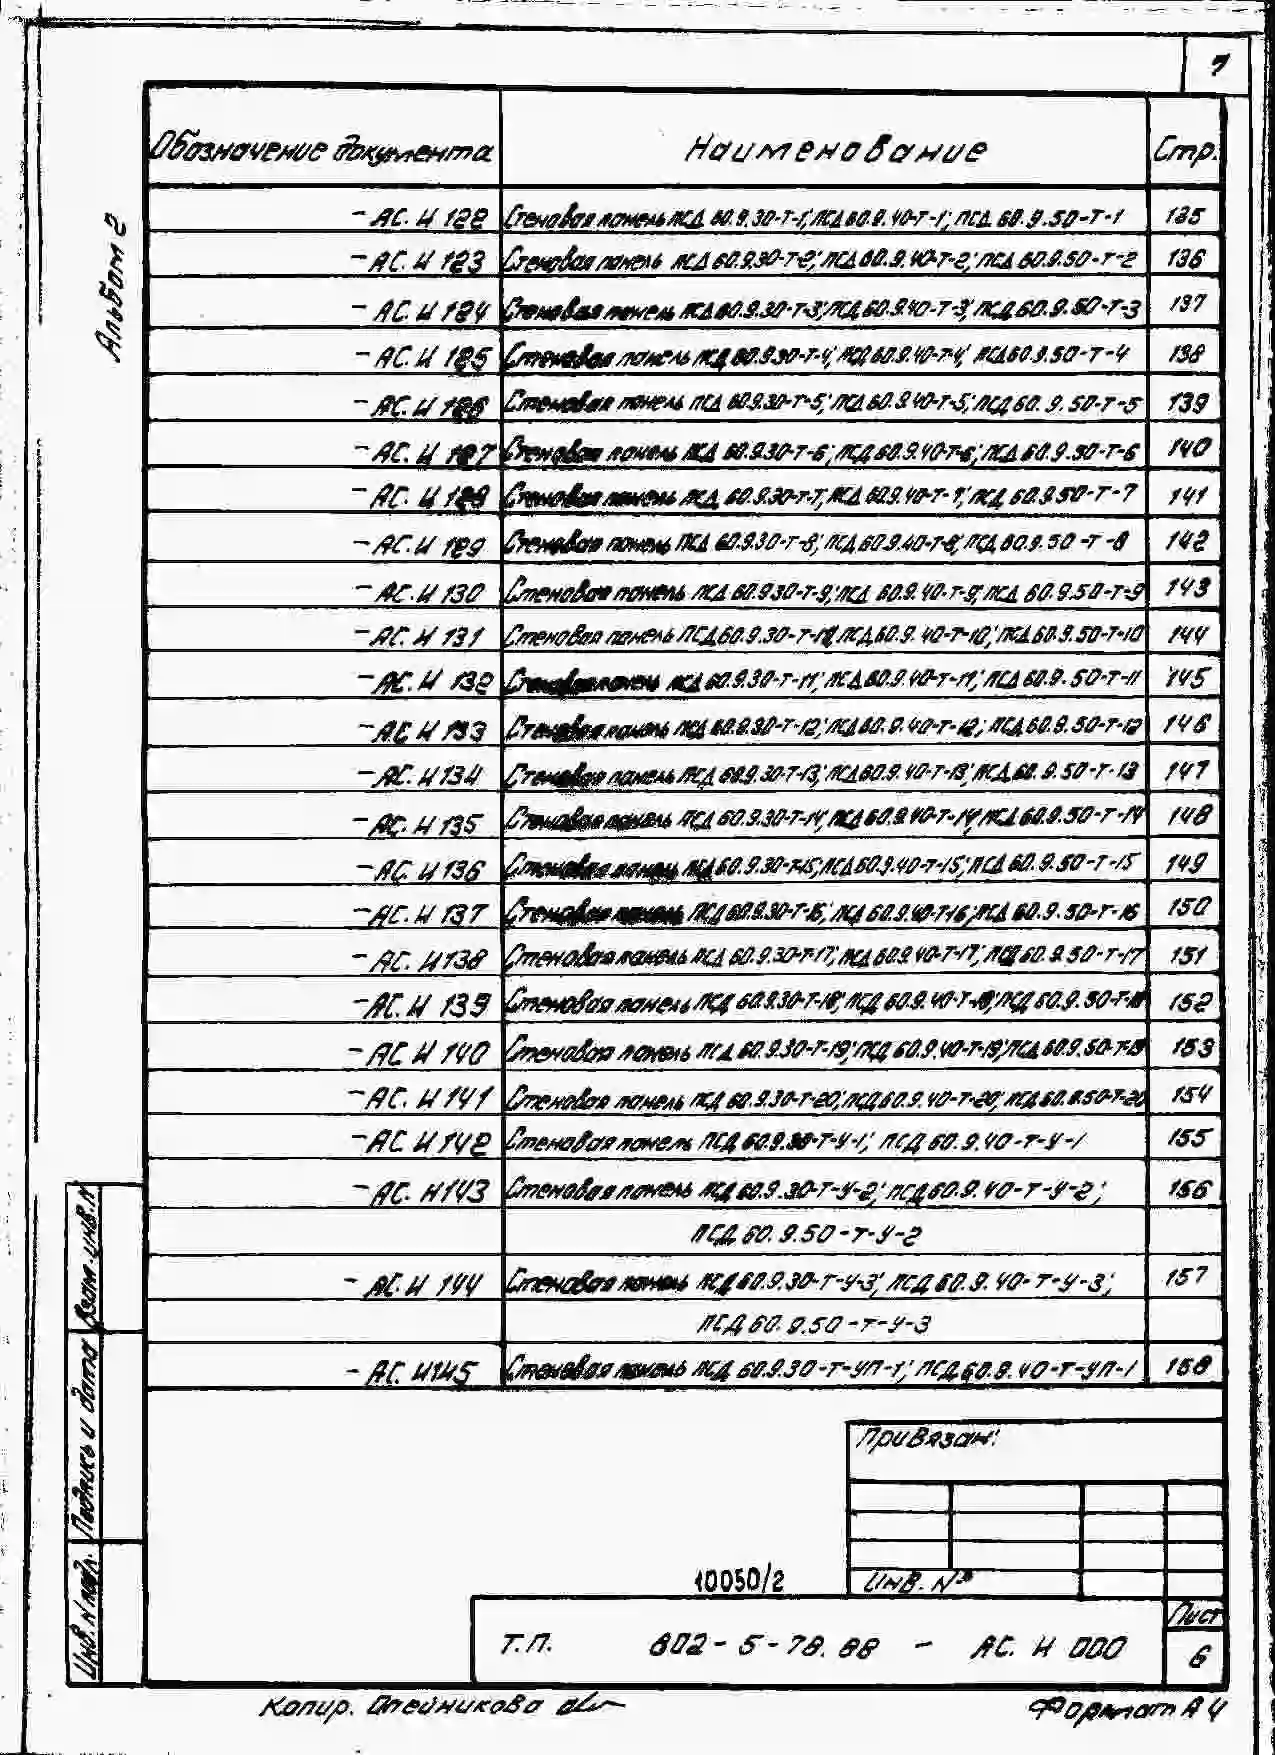 7
Альбом 2
Обозначение документа Наименование Стр.
- АС. И 122 Стеновая панель ПСД 60.9.30-Т-1; ПСД 60.9.40-Т-1; ПСД 60.9.50-Т-1 135
- АС. И 123 Стеновая панель ПСД 60.9.30-Т-2; ПСД 60.9.40-Т-2; ПСД 60.9.50-Т-2 136
- АС. И 124 Стеновая панель ПСД 60.9.30-Т-3; ПСД 60.9.40-Т-3; ПСД 60.9.50-Т-3 137
- АС. И 125 Стеновая панель ПСД 60.9.30-Т-4; ПСД 60.9.40-Т-4; ПСД 60.9.50-Т-4 138
- АС. И 126 Стеновая панель ПСД 60.9.30-Т-5; ПСД 60.9.40-Т-5; ПСД 60.9.50-Т-5 139
- АС. И 127 Стеновая панель ПСД 60.9.30-Т-6; ПСД 60.9.40-Т-6; ПСД 60.9.50-Т-6 140
- АС. И 128 Стеновая панель ПСД 60.9.30-Т-7; ПСД 60.9.40-Т-7; ПСД 60.9.50-Т-7 141
- АС. И 129 Стеновая панель ПСД 60.9.30-Т-8; ПСД 60.9.40-Т-8; ПСД 60.9.50-Т-8 142
- АС. И 130 Стеновая панель ПСД 60.9.30-Т-9; ПСД 60.9.40-Т-9; ПСД 60.9.50-Т-9 143
- АС. И 131 Стеновая панель ПСД 60.9.30-Т-10; ПСД 60.9.40-Т-10; ПСД 60.9.50-Т-10 144
- АС. И 132 Стеновая панель ПСД 60.9.30-Т-11; ПСД 60.9.40-Т-11; ПСД 60.9.50-Т-11 145
- АС И 133 Стеновая панель ПСД 60.9.30-Т-12; ПСД 60.9.40-Т-12; ПСД 60.9.50-Т-12 146
- АС. И 134 Стеновая панель ПСД 60.9.30-Т-13; ПСД 60.9.40-Т-13; ПСД 60.9.50-Т-13 147
- АС. И 135 Стеновая панель ПСД 60.9.30-Т-14; ПСД 60.9.40-Т-14; ПСД 60.9.50-Т-14 148
- АС. И 136 Стеновая панель ПСД 60.9.30-Т-15; ПСД 60.9.40-Т-15; ПСД 60.9.50-Т-15 149
- АС. И 137 Стеновая панель ПСД 60.9.30-Т-16; ПСД 60.9.40-Т-16; ПСД 60.9.50-Т-16 150
- АС. И 138 Стеновая панель ПСД 60.9.30-Т-17; ПСД 60.9.40-Т-17; ПСД 60.9.50-Т-17 151
- АС. И 139 Стеновая панель ПСД 60.9.30-Т-18; ПСД 60.9.40-Т-18; ПСД 60.9.50-Т-18 152
- АС И 140 Стеновая панель ПСД 60.9.30-Т-19; ПСД 60.9.40-Т-19; ПСД 60.9.50-Т-19 153
- АС. И 141 Стеновая панель ПСД 60.9.30-Т-20; ПСД 60.9.40-Т-20; ПСД 60.9.50-Т-20 154
- АС И 142 Стеновая панель ПСД 60.9.30-Т-У-1; ПСД 60.9.40-Т-У-1 155
- АС. И 143 Стеновая панель ПСД 60.9.30-Т-У-2; ПСД 60.9.40-Т-У-2; 156
ПСД 60.9.50-Т-У-2
- АС. И 144 Стеновая панель ПСД 60.9.30-Т-У-3; ПСД 60.9.40-Т-У-3; 157
ПСД 60.9.50-Т-У-3
- АС. И 145 Стеновая панель ПСД 60.9.30-Т-УП-1; ПСД 60.9.40-Т-УП-1 158
Взам.инв.N
Подпись и дата
Инв.N подл.
Привязан:
Инв. №
10050/2
Т.П. 802-5-78.88 - АС. И 000
Лист
6
Копир. Олейникова
Формат А4